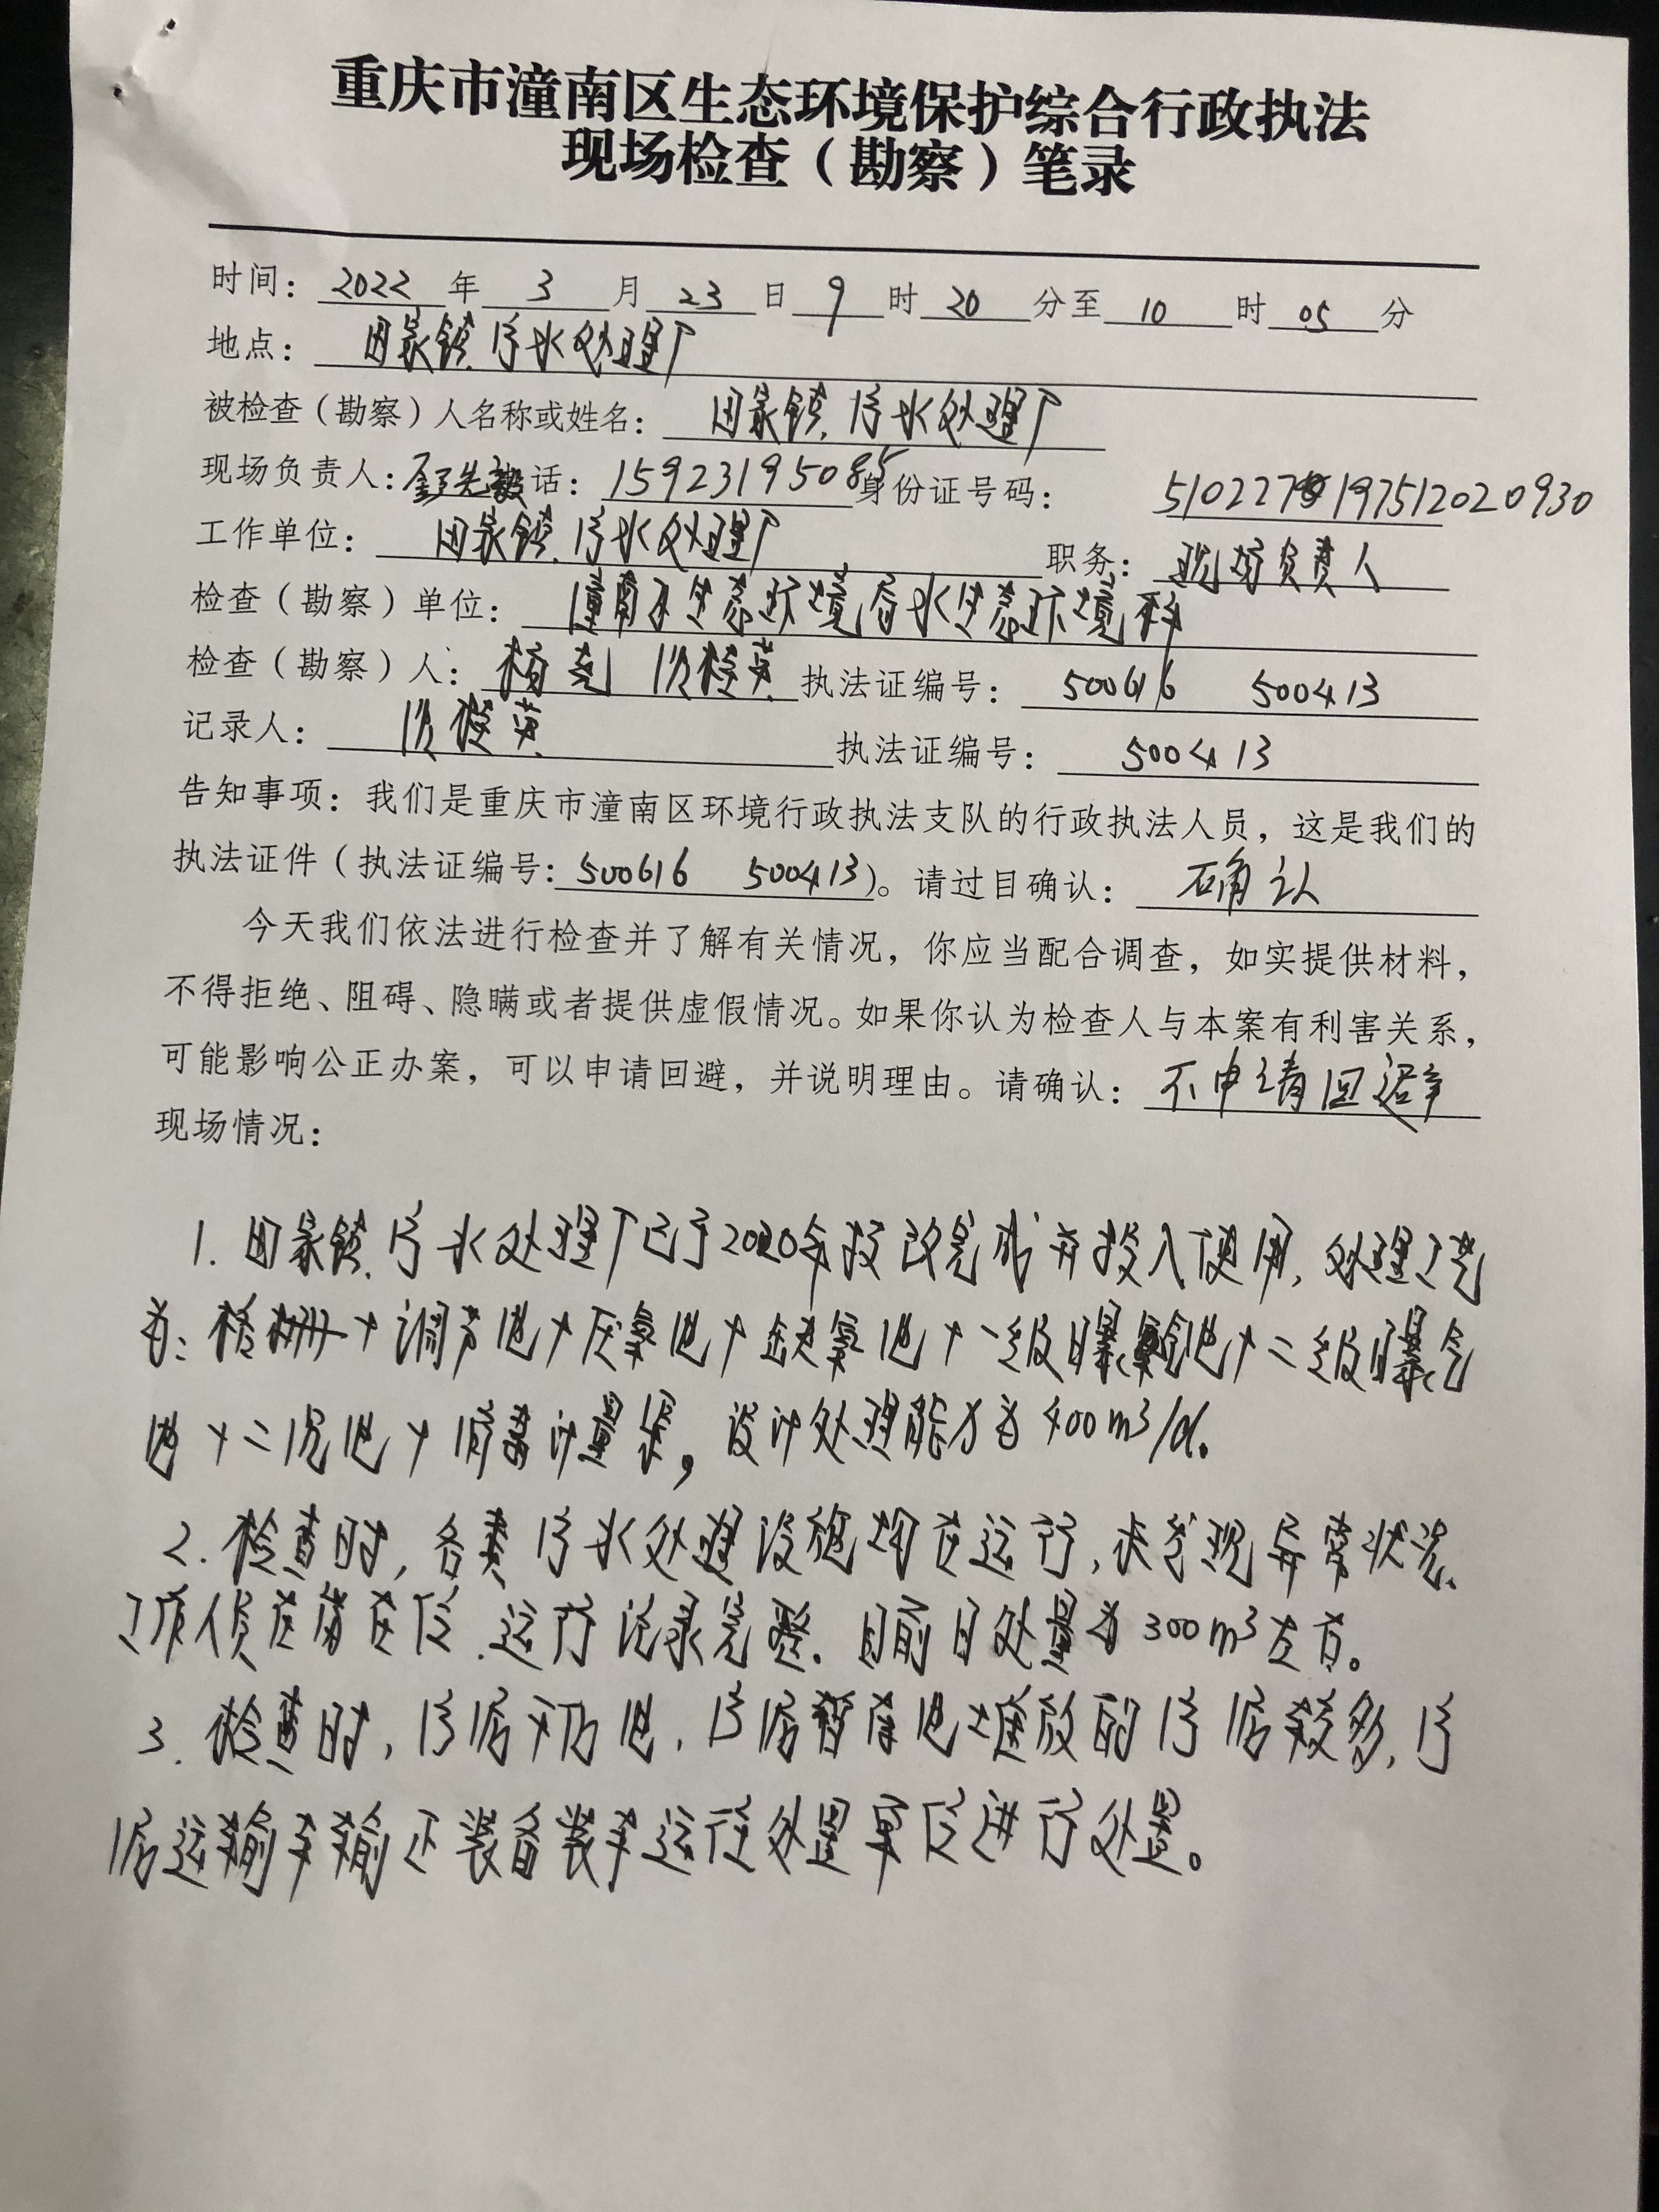 重庆市潼南区生态环境保护综合行政执法
现场检查（勘察）笔录
时间：2022年3月23日9时20分至10时05分
地点：田家镇污水处理厂
被检查（勘察）人名称或姓名：田家镇污水处理厂
现场负责人：话：15923195085身份证号码：510227197512020930
工作单位：田家镇污水处理厂 职务：现场负责人
检查（勘察）单位：潼南区生态环境局水生态环境科
检查（勘察）人：杨 英 执法证编号：500616 500413
记录人：俊英 执法证编号：500413
告知事项：我们是重庆市潼南区环境行政执法支队的行政执法人员，这是我们的
执法证件（执法证编号：500616 500413）。请过目确认：确认
今天我们依法进行检查并了解有关情况，你应当配合调查，如实提供材料，
不得拒绝、阻碍、隐瞒或者提供虚假情况。如果你认为检查人与本案有利害关系，
可能影响公正办案，可以申请回避，并说明理由。请确认：不申请回避
现场情况：
1. 田家镇污水处理厂已于2020年技改完成并投入使用，处理工艺
为：格栅+调节池+厌氧池+缺氧池+一级曝氧池+二级曝气
池+二沉池+消毒计量渠，设计处理能力为400m³/d。
2. 检查时，各类污水处理设施均在运行，未发现异常状况、
工作人员在岗在位，运行记录完整。目前日处量为300m³左右。
3. 检查时，污泥干化池，污泥暂存池堆放的污泥较多，污
泥运输车辆正装备装车运往处置单位进行处置。